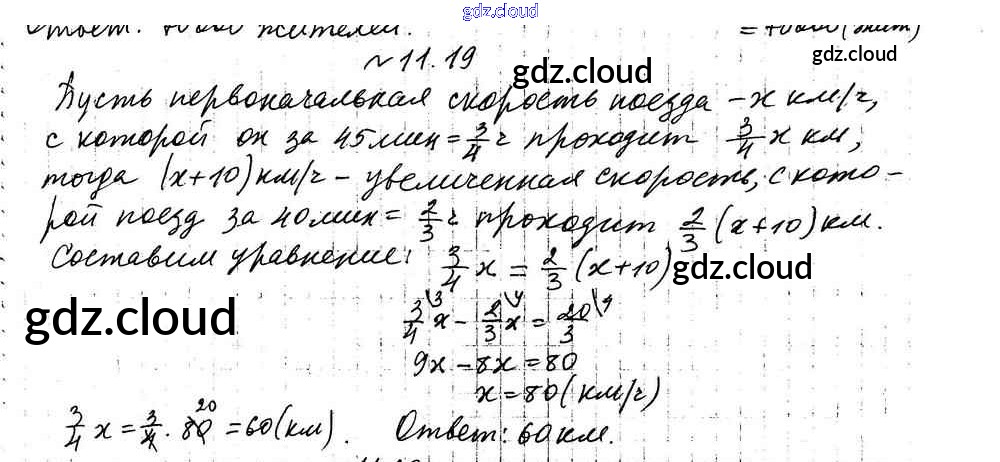 gdz.cloud
Ответ: жителей.
№ 11.19
gdz.cloud
gdz.cloud
Пусть первоначальная скорость поезда – x км/ч,
с которой он за 45 мин = 3/4 ч проходит 3/4 x км,
тогда (x+10) км/ч – увеличенная скорость, с кото-
рой поезд за 40 мин = 2/3 ч проходит 2/3 (x+10) км.
Составим уравнение: 3/4 x = 2/3 (x+10)
gdz.cloud
gdz.cloud
3/4 \3 x – 2/3 \4 x = 20/3 \4
9x – 8x = 80
x = 80 (км/ч)
3/4 x = 3/4 · 80 20 = 60 (км). Ответ: 60 км.